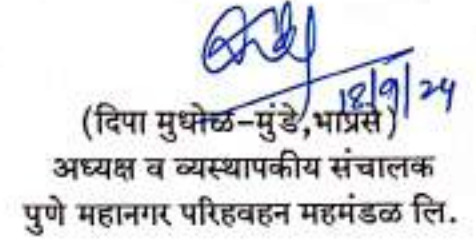 18/9/24
(दिपा मुधोळ-मुंडे,भाप्रसे)
अध्यक्ष व व्यस्थापकीय संचालक
पुणे महानगर परिहवहन महमंडळ लि.